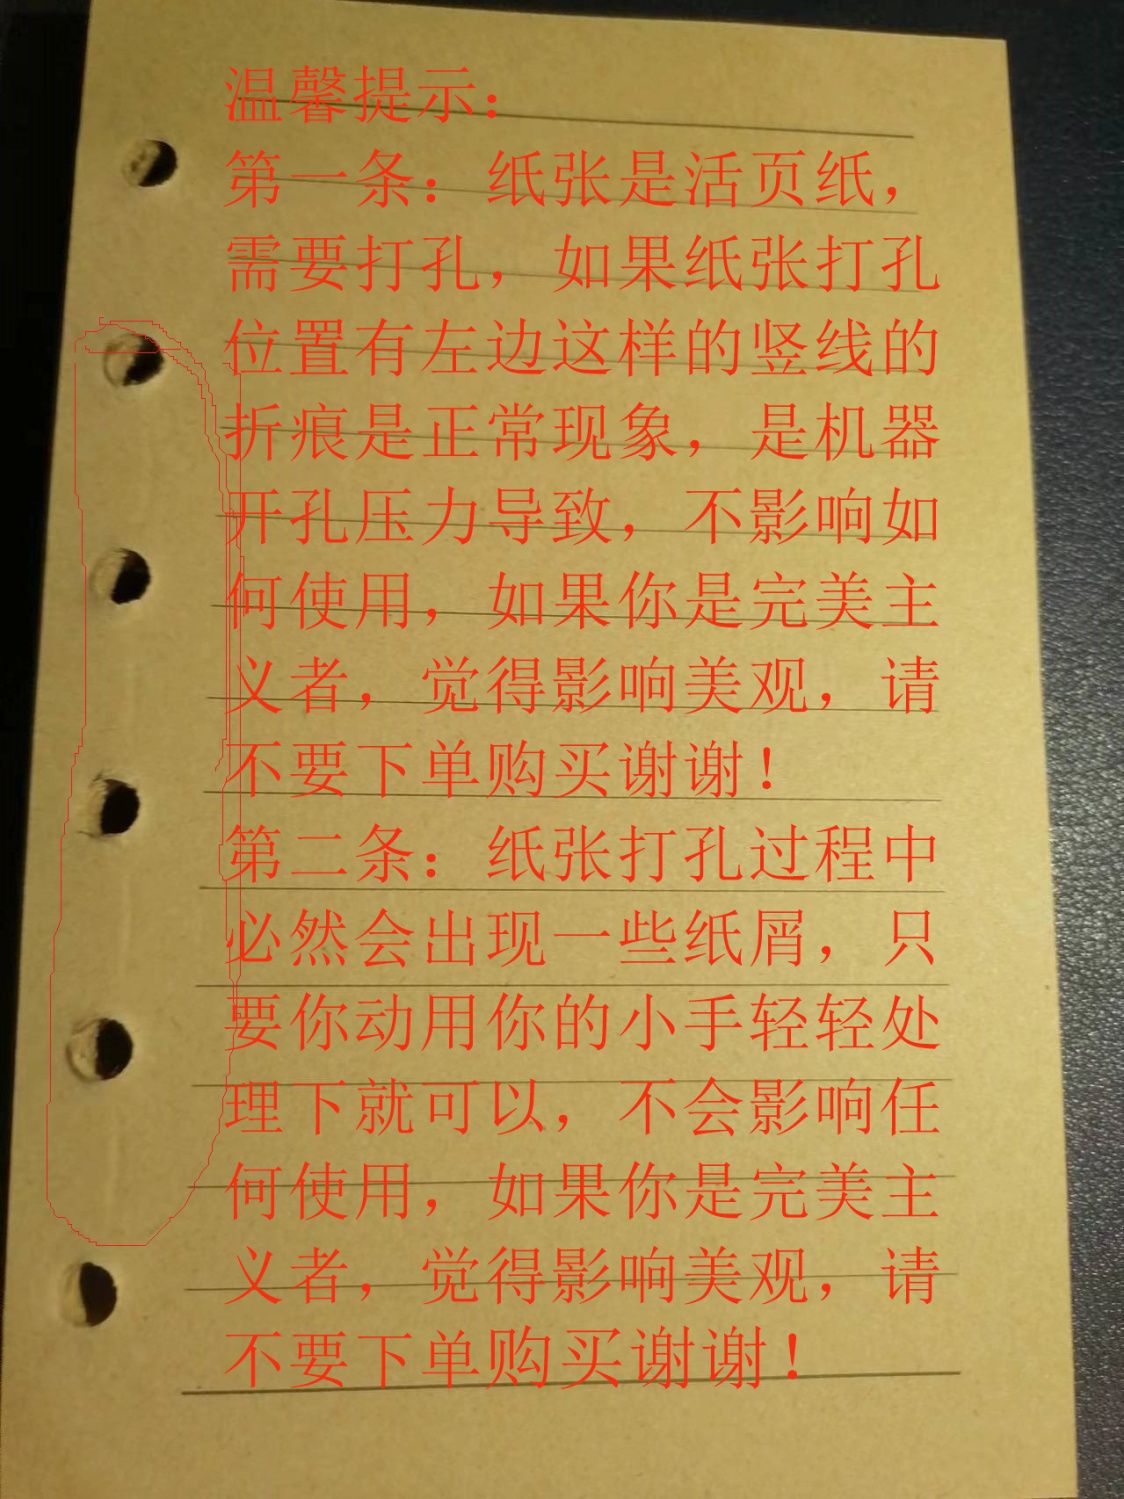 温馨提示：
第一条：纸张是活页纸，
需要打孔，如果纸张打孔
位置有左边这样的竖线的
折痕是正常现象，是机器
开孔压力导致，不影响如
何使用，如果你是完美主
义者，觉得影响美观，请
不要下单购买谢谢！
第二条：纸张打孔过程中
必然会出现一些纸屑，只
要你动用你的小手轻轻处
理下就可以，不会影响任
何使用，如果你是完美主
义者，觉得影响美观，请
不要下单购买谢谢！